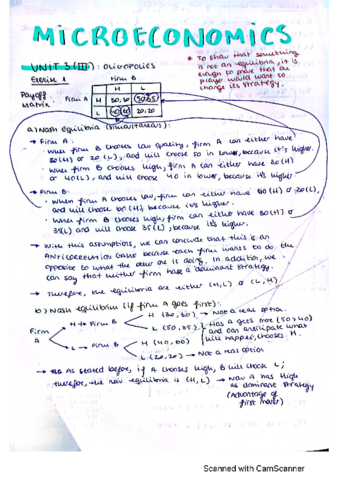 MICROECONOMICS
UNIT 3 (III): OLIGOPOLIES
* To show that something
is not an equilibria, it is
enough to prove that one
player would want to
change its strategy.
Exercise 1
Firm B
H L
Payoff
Matrix: Firm A H 30,30 50,35
L 40,60 20,20
a) Nash Equilibria (simultaneous):
→ Firm A:
· when firm B chooses low quality, firm A can either have
50 (H) or 20 (L), and will choose 50 in lower, because it's higher.
· when firm B chooses high quality, firm A can either have 30 (H)
or 40 (L), and will choose 40 in lower, because it's higher.
→ Firm B:
· when firm A chooses low, firm can either have 60 (H) or 20 (L),
and will choose 60 (H) because it's higher.
· when firm A chooses high, firm can either have 30 (H) or
35 (L) and will choose 35 (L), because it's higher.
→ With this assumptions, we can conclude that this is an
ANTICOORDINATION GAME because each firm wants to do the
opposite to what the other one is doing. In addition, we
can say that neither firm have a dominant strategy.
→ Therefore, the equilibria are either (H,L) or (L,H).
b) Nash equilibrium (if firm A goes first):
Firm A
H → Firm B
H (30,30) → Not a real option.
L (50,35)
L → Firm B
H (40,60)
L (20,20) → Not a real option
Has A gets more (50>40)
and can anticipate what
will happen, chooses H.
→ As stated before, if A chooses high, B will choose L;
therefore, the new equilibria is (H,L) → Now A has High
as dominant strategy
(Advantage of
first mover)
Scanned with CamScanner